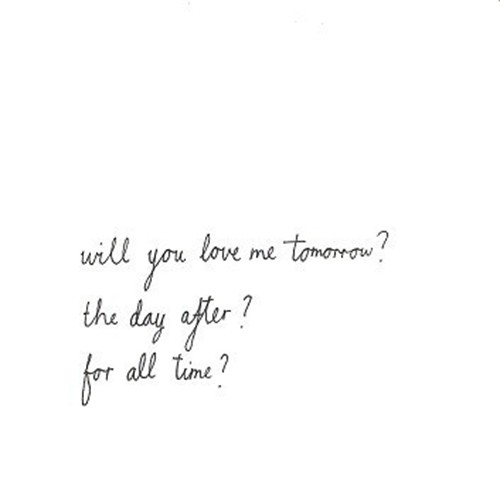 will you love me tomorrow?
the day after?
for all time?